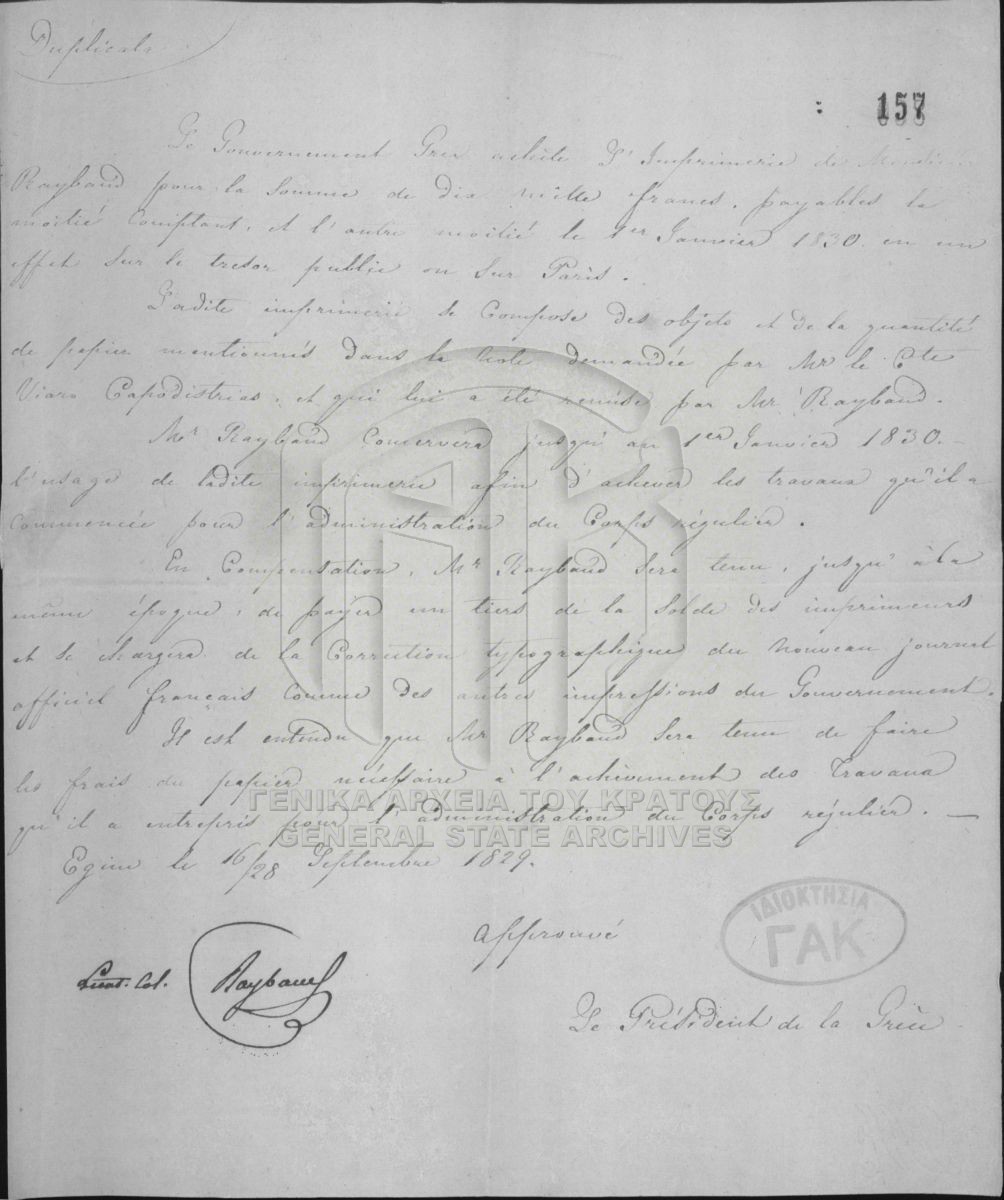 Duplicata
157
Le Gouvernement Grec achète l'Imprimerie de Monsieur
Raybaud pour la somme de dix mille francs, payables la
moitié Comptant, et l'autre moitié le 1er Janvier 1830. en un
effet sur le tresor public ou sur Paris.
Ladite imprimerie se Compose des objets et de la quantité
de papier mentionnés dans la Note demandée par Mr le Cte
Viaro Capodistrias, et qui lui a été remise par Mr Raybaud.
Mr Raybaud Conservera jusqu'au 1er Janvier 1830. —
l'usage de ladite imprimerie afin d'achever les travaux qu'il a
Commencée pour l'administration du Corps régulier.
En Compensation, Mr Raybaud sera tenu, jusqu'à la
même époque, de payer un tiers de la solde des imprimeurs
et se chargera de la Correction typographique du nouveau journal
officiel français comme des autres impressions du Gouvernement.
Il est entendu que Mr Raybaud sera tenu de faire
les frais du papier nécessaire à l'achèvement des Travaux
ΓΕΝΙΚΑ ΑΡΧΕΙΑ ΤΟΥ ΚΡΑΤΟΥΣ
qu'il a entrepris pour l'administration du Corps régulier. —
GENERAL STATE ARCHIVES
Egine le 16/28 Septembre 1829.
ΙΔΙΟΚΤΗΣΙΑ
ΓΑΚ
Approuvé
Lieut. Col. Raybaud
Le Président de la Grèce